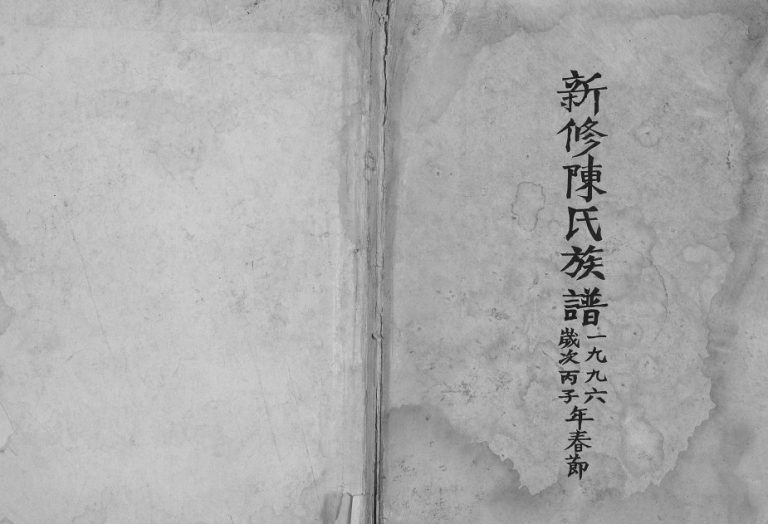 新修陳氏族譜
一九九六
歲次丙子
年春節